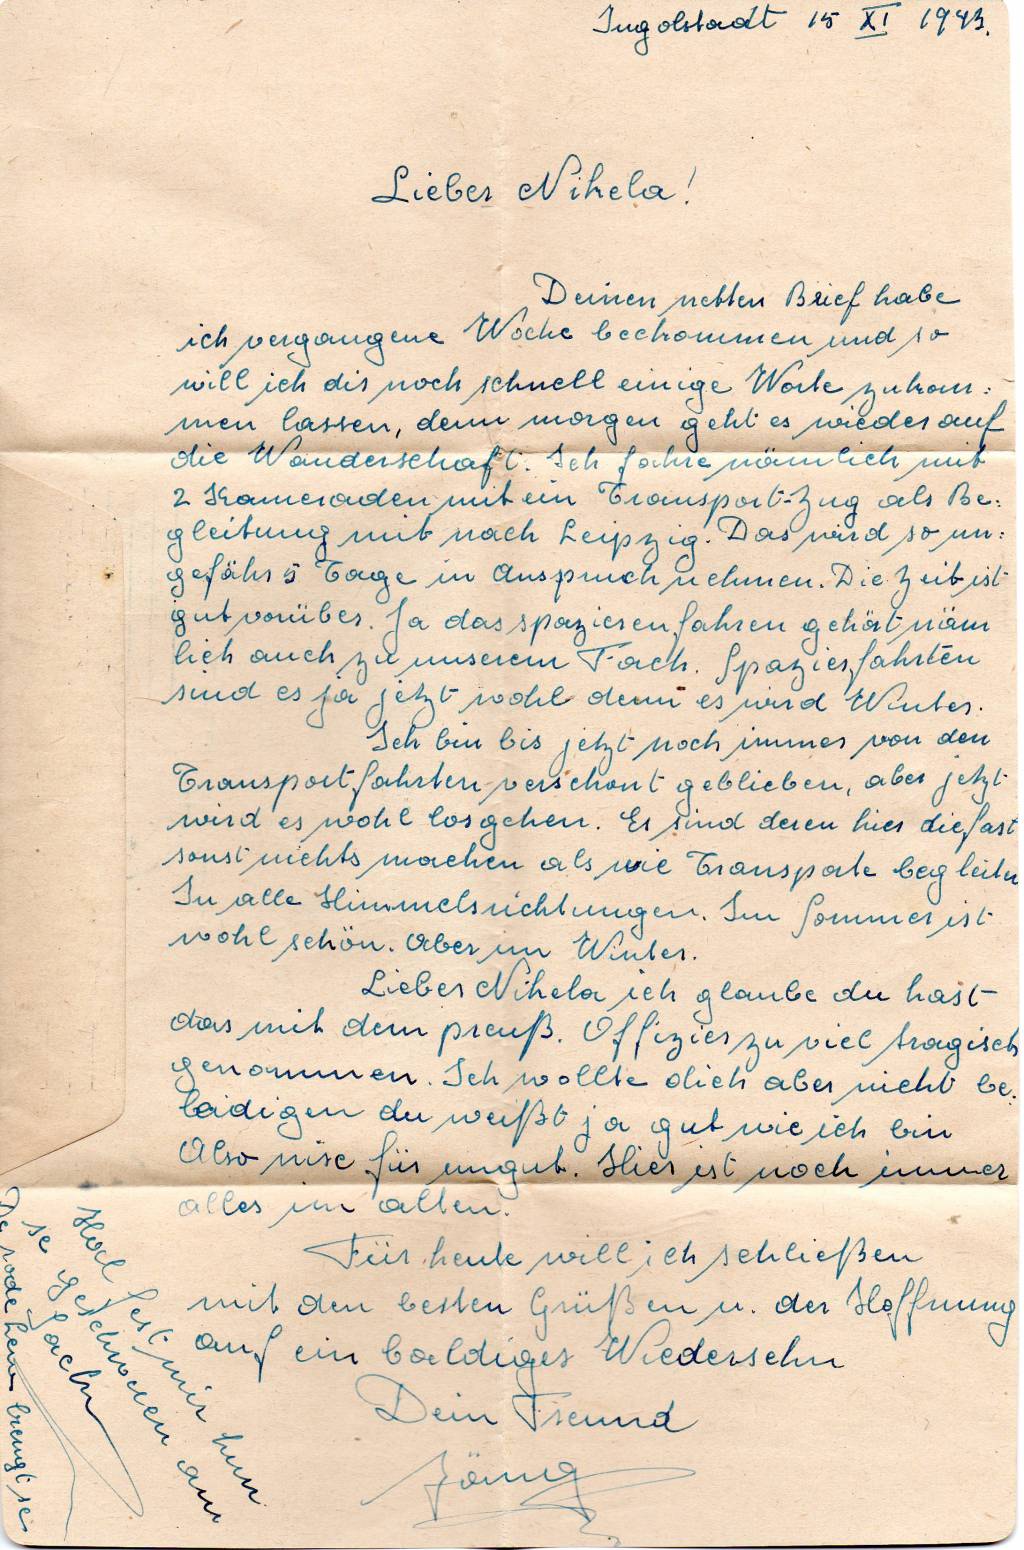 Ingolstadt 15 XI 1943.
Lieber Nikela!
Deinen netten Brief habe
ich vergangene Woche beckommen und so
will ich dir noch schnell einige Worte zukom:
men lassen, denn morgen geht es wieder auf
die Wanderschaft. Ich fahre nämlich mit
2 Kameraden mit ein Transport-Zug als Be:
gleitung mit nach Leipzig. Das wird so un:
gefähr 5 Tage in Anspruch nehmen. Die Zeit ist
gut vorüber. Ja das spazierenfahren gehört näm
lich auch zu unserem Fach. Spazierfahrten
sind es ja jetzt wohl denn es wird Winter.
Ich bin bis jetzt noch immer von den
Transportfahrten verschont geblieben, aber jetzt
wird es wohl losgehen. Es sind deren hier die fast
sonst nichts machen als wie Transporte begleiten
In alle Himmelsrichtungen. Im Sommer ist
wohl schön. Aber im Winter.
Lieber Nikela ich glaube du hast
das mit dem preuß. Offizier zu viel tragisch
genommen. Ich wollte dich aber nicht be:
leidigen du weißt ja gut wie ich bin
Also nix für ungut. Hier ist noch immer
alles im alten.
Für heute will ich schließen
mit den besten Grüßen u. der Hoffnung
auf ein baldiges Wiedersehn
Dein Freund
Hal fest mir hun
se geschwoen an